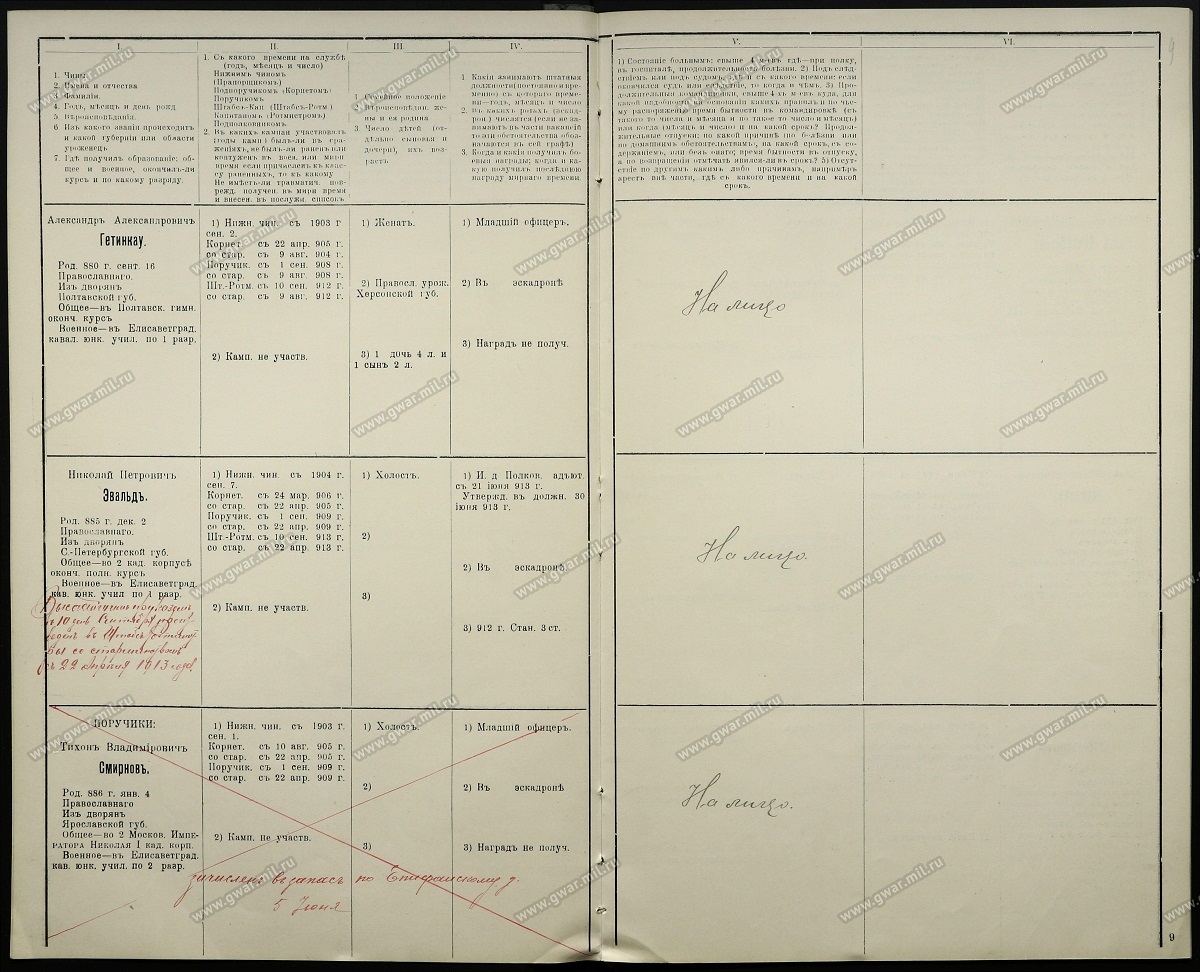 I.
1. Чинъ
2. Имена и отчества
3. Фамилія.
4. Годъ, мѣсяцъ и день рожд
5. Вѣроисповѣданія.
6. Изъ какого званія происходитъ
и какой губерніи или области
уроженецъ
7. Гдѣ получилъ образованіе: об-
щее и военное, окончилъ-ли
курсъ и по какому разряду.
II.
1. Съ какого времени на службѣ
(годъ, мѣсяцъ и число)
Нижнимъ чиномъ
(Прапорщикомъ)
Подпоручикомъ (Корнетомъ)
Поручикомъ
Штабсъ-Кап (Штабсъ-Ротм.)
Капитаномъ (Ротмистромъ)
Подполковникомъ
2. Въ какихъ кампан участвовалъ
(годы камп) былъ-ли въ сра-
женіяхъ, не былъ-ли раненъ или
контуженъ въ воен. или мирн
время если причислены къ клас-
су раненыхъ, то къ какому
Не имѣетъ-ли травматич. пов-
режд. получен. въ мирн время
и внесен. въ послужн списокъ
III.
1 Семейное положеніе
2 Вѣроисповѣдан. же-
ны и ея родина
3. Число дѣтей (от-
дѣльно сыновья и
дочери), ихъ воз-
растъ
IV.
1 Какія занимаютъ штатныя
должности (постоянно и вре-
менно) съ которого време-
ни—годъ, мѣсяцъ и число
2. Въ какихъ ротахъ (эскад-
рон) числятся (если не за-
нимаютъ въ части вакансій
то эти обстоятельства обоз-
начаются въ сей графѣ)
3. Когда и какія получилъ бо-
евыя награды; когда и ка-
кую получилъ послѣднюю
награду мирнаго времени.
V.
1) Состояніе больнымъ: свыше 4 м-евъ гдѣ—при полку,
въ госпиталѣ, продолжительность болѣзни. 2) Подъ слѣд-
ствіемъ или подъ судомъ, гдѣ и съ какого времени; если
окончился судъ или слѣдствіе, то когда и чѣмъ. 3) Про-
должительныя командировки, свыше 4 м-евъ куда, для
какой надобности на основаніи какихъ правилъ и по чье-
му распоряженію время бытности въ командировкѣ (съ
такого то числа и мѣсяца и по такое то число и мѣсяцъ)
или когда (мѣсяцъ и число и на какой срокъ? Продол-
жительные отпуски: по какой причинѣ по болѣзни или
по домашнимъ обстоятельствамъ, на какой срокъ, съ со-
держаніемъ, или безъ онаго; время бытности въ отпуску,
а по возвращеніи отмѣчать явился-ли въ срокъ? 5) Отсут-
ствіе по другимъ какимъ либо причинамъ, напримѣръ
арестъ внѣ части, гдѣ съ какого времени и на какой
срокъ.
VI.
Александръ Александровичъ
Гетинкау.
Род. 880 г. сент. 16
Православнаго.
Изъ дворянъ
Полтавской губ.
Общее—въ Полтавск. гимн.
оконч. курсъ
Военное—въ Елисаветград.
кавал. юнк. учил. по 1 разр.
1) Нижн. чин. съ 1903 г
сен. 2.
Корнет. съ 22 апр. 905 г.
со стар. съ 9 авг. 904 г.
Поручик. съ 1 сен. 908 г.
со стар. съ 9 авг. 908 г.
Шт.-Ротм съ 10 сен. 912 г.
со стар. съ 9 авг. 912 г.
2) Камп. не участв.
1) Женатъ.
2) Правосл. урож.
Херсонской губ.
3) 1 дочь 4 л. и
1 сынъ 2 л.
1) Младшій офицеръ.
2) Въ эскадронѣ
3) Наградъ не получ.
На лицо
Николай Петровичъ
Эвальдъ.
Род. 885 г. дек. 2
Православнаго.
Изъ дворянъ
С.-Петербургской губ.
Общее—во 2 кад. корпусѣ
оконч. полн. курсъ
Военное—въ Елисаветград.
кав. юнк. учил по 1 разр.
Высочайшимъ приказомъ
въ 10 день Сентября произ-
веденъ въ Штабсъ-Ротмист-
ры со старшинствомъ
съ 22 апрѣля 1913 года
1) Нижн. чин. съ 1904 г.
сен. 7.
Корнет. съ 24 мар. 906 г.
со стар. съ 22 апр. 905 г.
Поручик. съ 1 сен. 909 г.
со стар. съ 22 апр. 909 г.
Шт.-Ротм. съ 10 сен. 913 г.
со стар. съ 22 апр. 913 г.
2) Камп. не участв.
1) Холостъ.
2)
3)
1) И. д Полков. адъют.
съ 21 іюня 913 г.
Утвержд. въ должн. 30
іюня 913 г.
2) Въ эскадронѣ.
3) 912 г. Стан. 3 ст.
На лицо.
ПОРУЧИКИ:
Тихонъ Владиміровичъ
Смирновъ.
Род. 886 г. янв. 4
Православнаго
Изъ дворянъ
Ярославской губ.
Общее—во 2 Москов. Импе-
ратора Николая I кад. корп.
Военное—въ Елисаветград.
кав. юнк. учил. по 2 разр.
1) Нижн. чин. съ 1903 г.
сен. 1.
Корнет. съ 10 авг. 905 г.
со стар. съ 22 апр. 905 г.
Поручик. съ 1 сен. 909 г.
со стар. съ 22 апр. 909 г.
2) Камп. не участв.
1) Холостъ.
2)
3)
1) Младшій офицеръ.
2) Въ эскадронѣ
3) Наградъ не получ.
зачисленъ въ запасъ по Епифанскому у.
5 Іюня
На лицо.
9
www.gwar.mil.ru